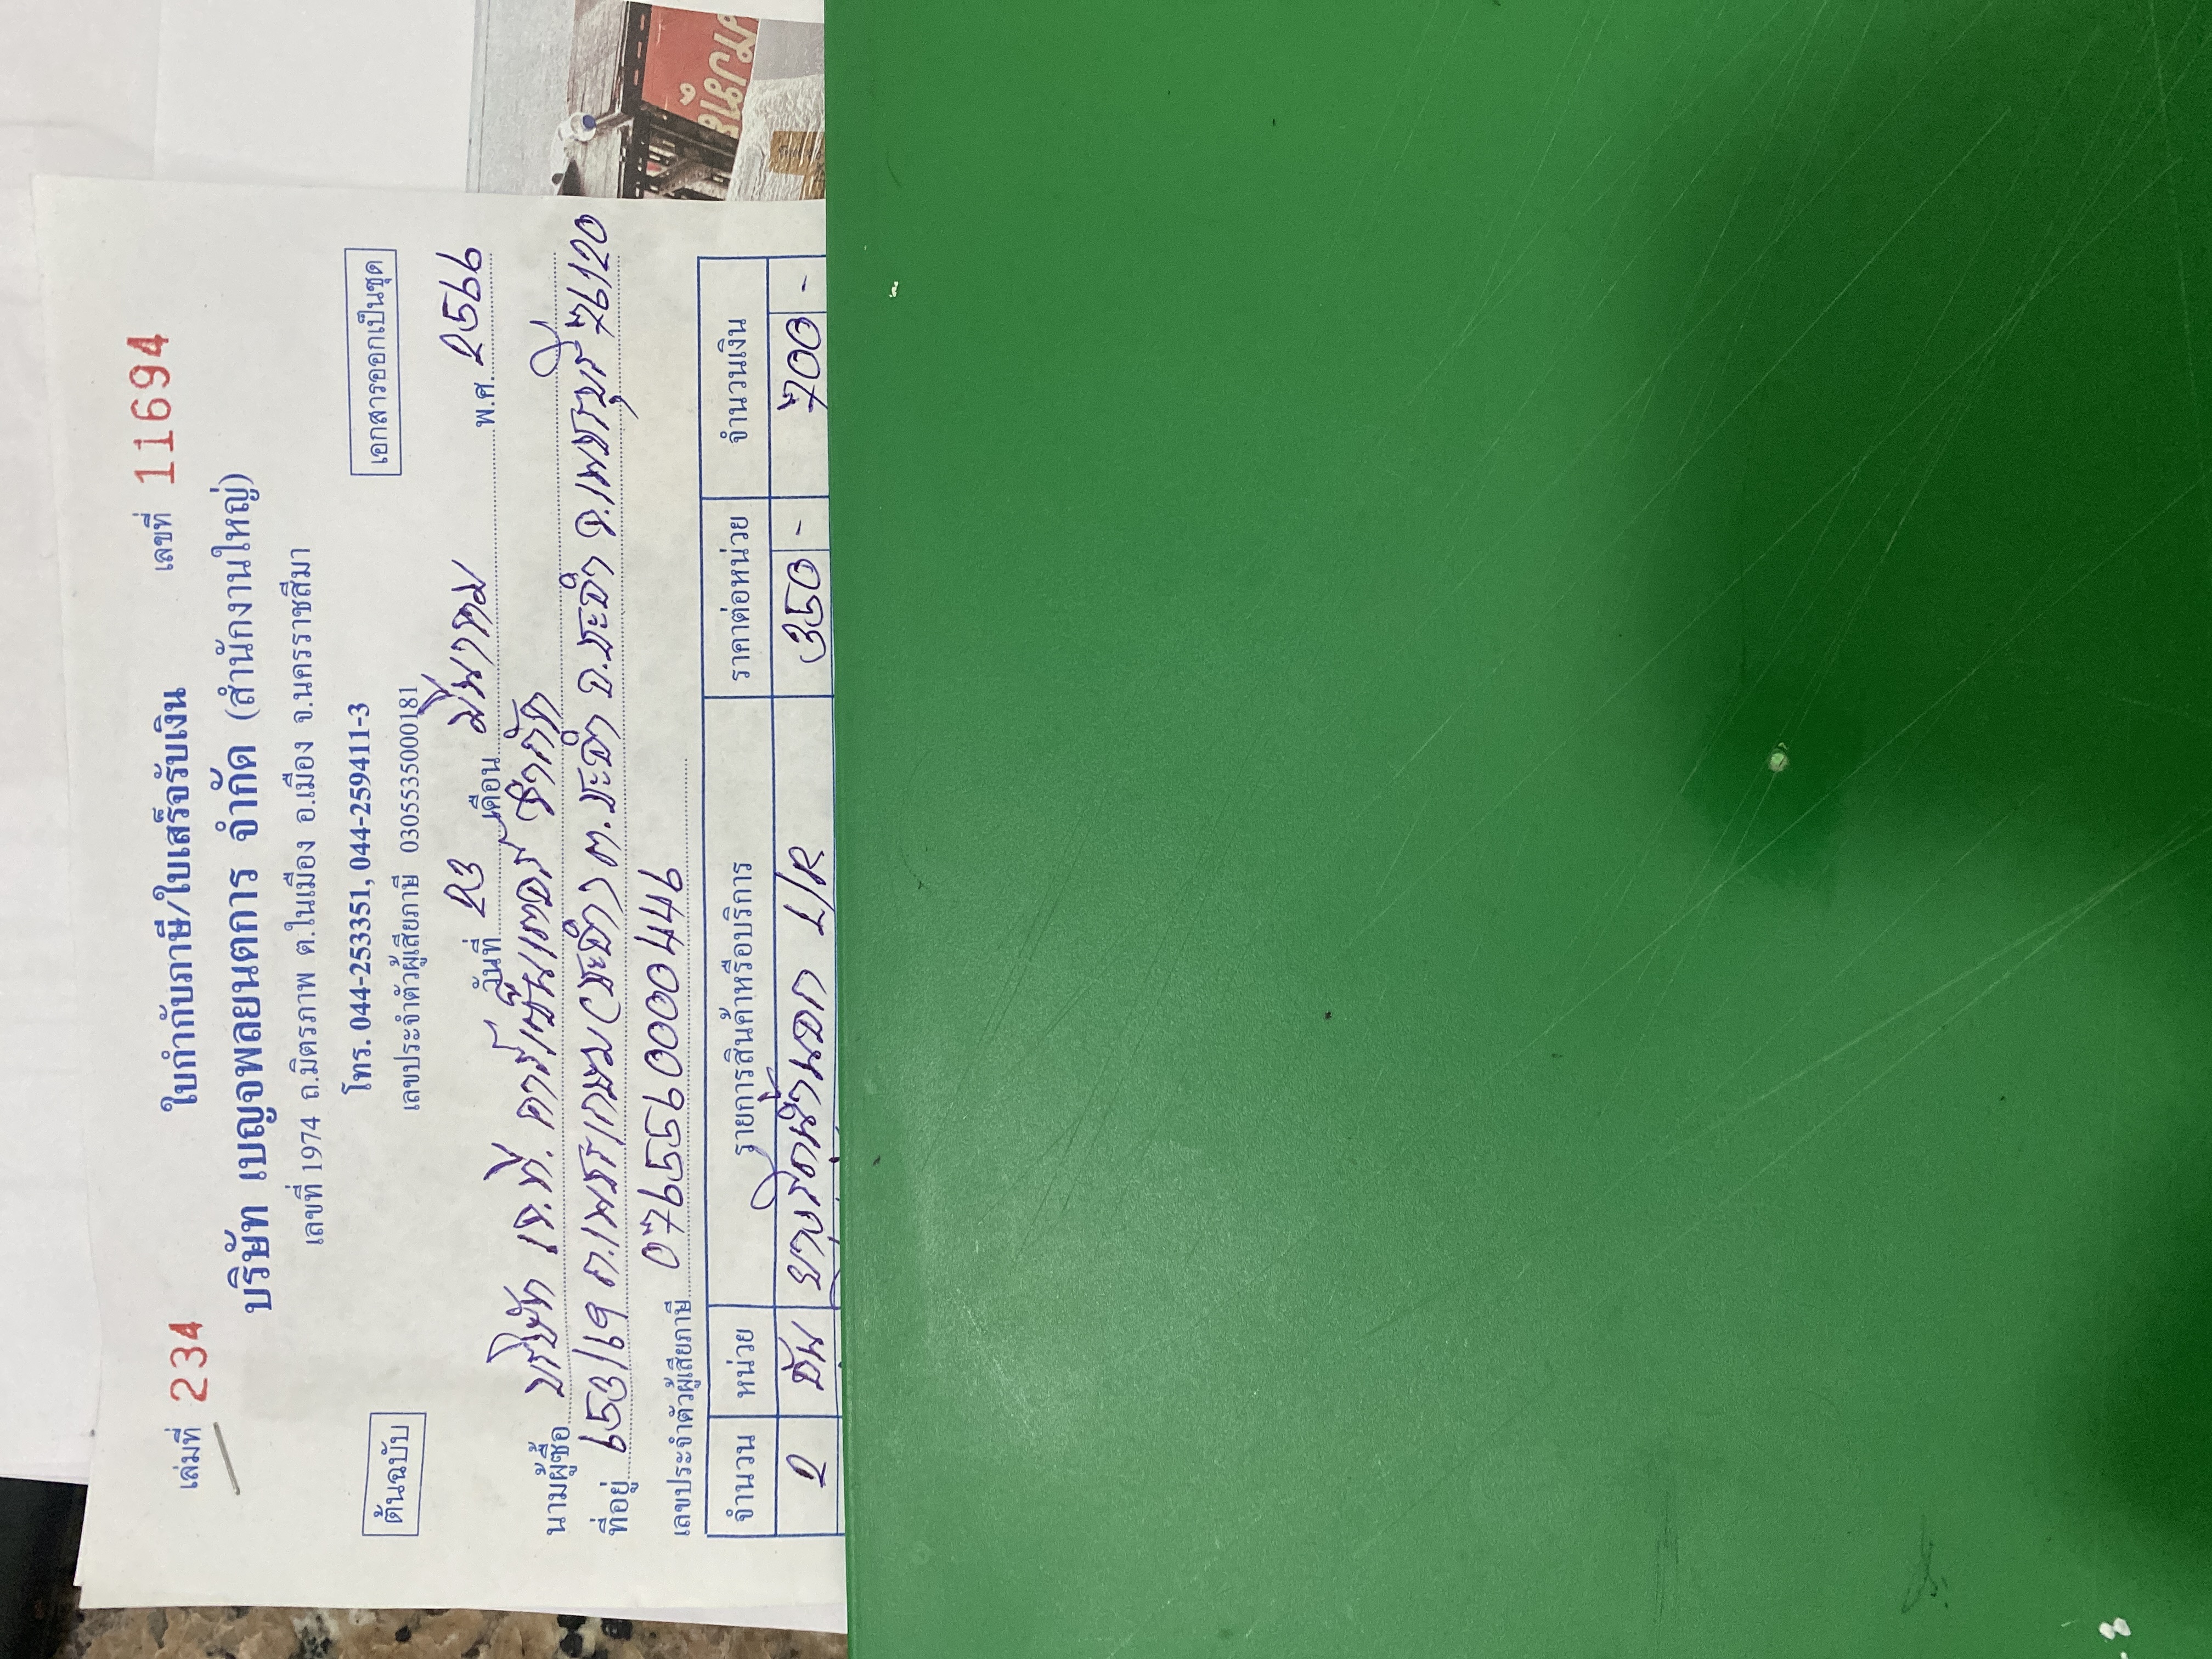 เล่มที่ 234 ใบกำกับภาษี/ใบเสร็จรับเงิน เลขที่ 11694
บริษัท เบญจพลยนตการ จำกัด (สำนักงานใหญ่)
เลขที่ 1974 ถ.มิตรภาพ ต.ในเมือง อ.เมือง จ.นครราชสีมา
ต้นฉบับ โทร. 044-253351, 044-259411-3 เอกสารออกเป็นชุด
เลขประจำตัวผู้เสียภาษี 0305535000181
วันที่ 23 เดือน มีนาคม พ.ศ. 2566
นามผู้ซื้อ บริษัท เจ.ที. คาร์เซ็นเตอร์ จำกัด
ที่อยู่ 653/19 ถ.เพชรเกษม ต.ชะอำ อ.ชะอำ จ.เพชรบุรี 76120
เลขประจำตัวผู้เสียภาษี 0765560000446
จำนวน หน่วย รายการสินค้าหรือบริการ ราคาต่อหน่วย จำนวนเงิน
2 อัน ยางรีดน้ำนอก L/R 350 - 700 -